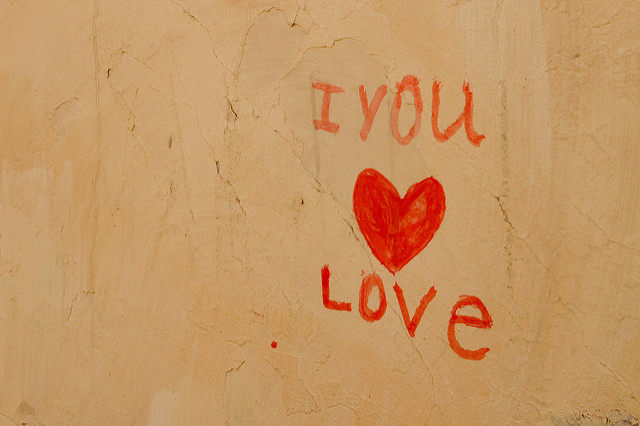 I YOU
LOVe